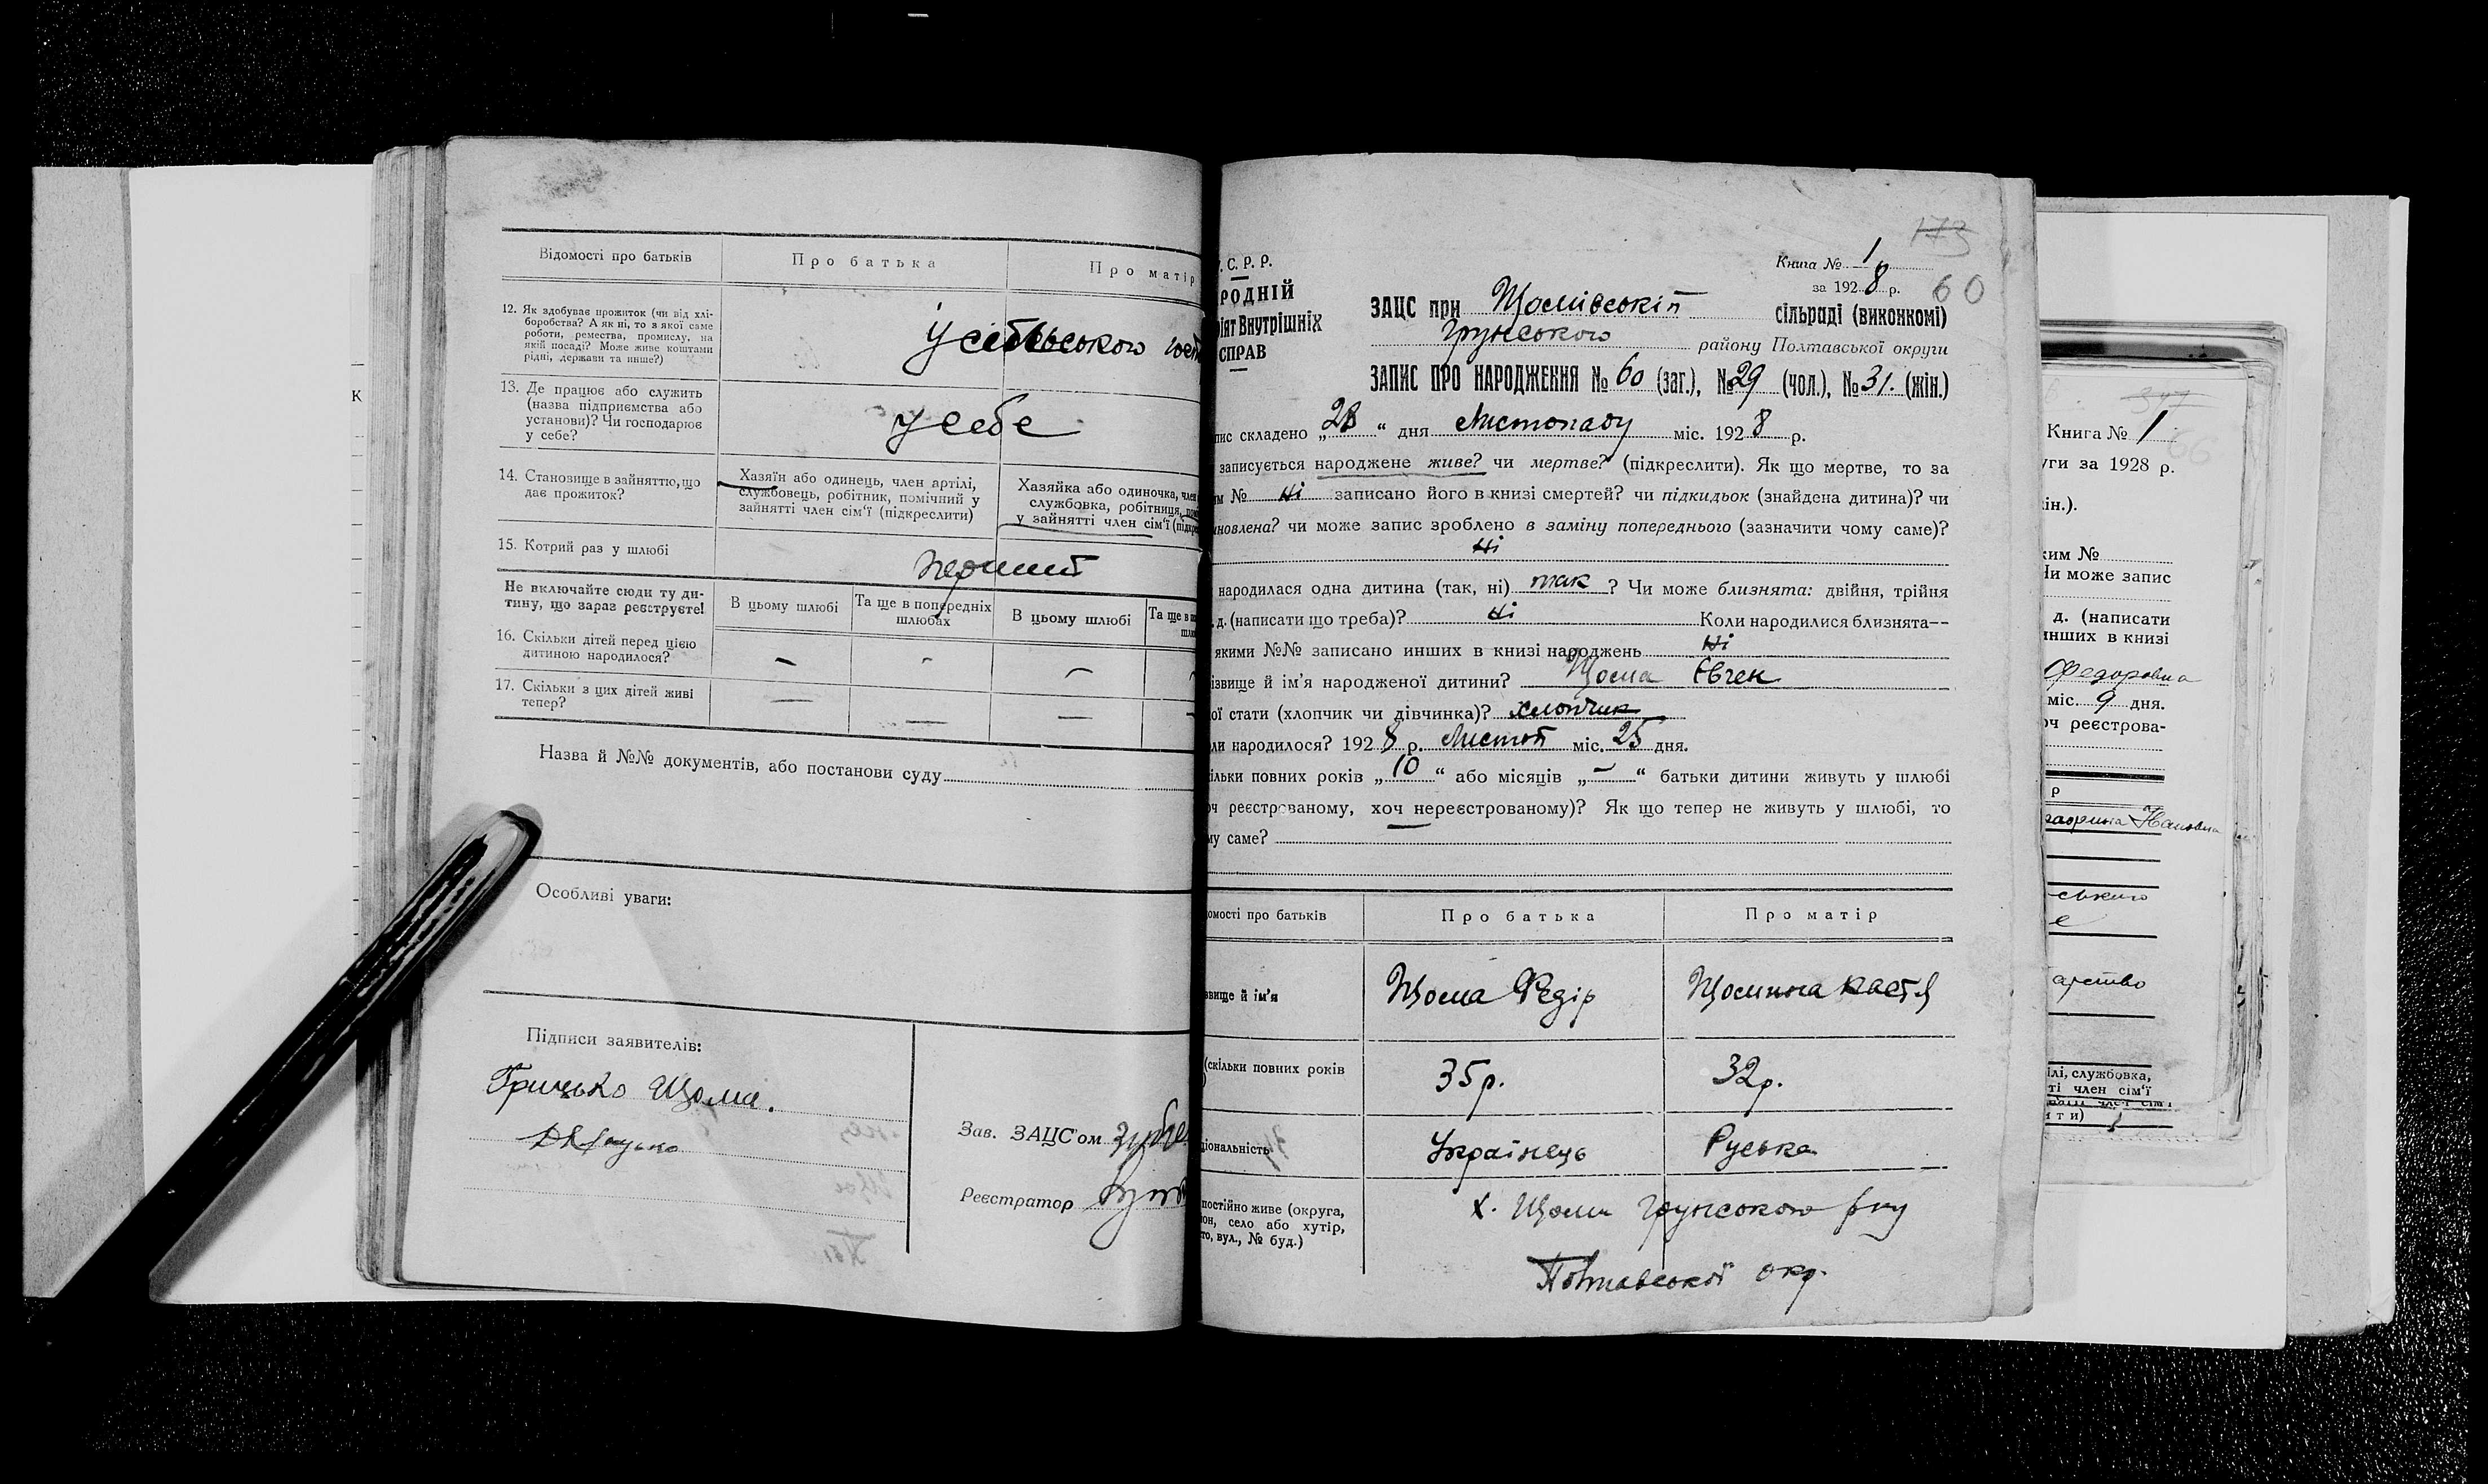 Відомості про батьків
Про батька
Про матір
12. Як здобуває прожиток (чи від хлі-
боробства? А як ні, то з якої саме
роботи, ремества, промислу, на
якій посаді? Може живе коштами
рідні, держави та инше?)
13. Де працює або служить
(назва підприємства або
установи)? Чи господарює
у себе?
у себе
14. Становище в зайняттю, що
дає прожиток?
Хазяїн або одинець, член артілі,
службовець, робітник, помічний у
зайнятті член сім'ї (підкреслити)
Хазяйка або одиночка, член
службовка, робітниця,
у зайнятті член сім'ї
15. Котрий раз у шлюбі
перший
Не включайте сюди ту ди-
тину, що зараз реєструєте!
В цьому шлюбі
Та ще в попередніх
шлюбах
В цьому шлюбі
Та ще в
16. Скільки дітей перед цією
дитиною народилося?
— - — 
17. Скільки з цих дітей живі
тепер?
— — — -
Назва й №№ документів, або постанови суду
Особливі уваги:
Підписи заявителів:
Грицько Щома.
Зав. ЗАЦС'ом
Реєстратор
173
. С. Р. Р.
РОДНІЙ
ріят Внутрішніх
СПРАВ
Книга № 1
за 1928 р.
60
ЗАЦС при Щомівській сільраді (виконкомі)
Грунського району Полтавської округи
ЗАПИС ПРО НАРОДЖЕННЯ № 60 (заг.), № 29 (чол.), № 31. (жін.)
пис складено „28“ дня Листопаду міс. 1928 р.
записується народжене живе? чи мертве? (підкреслити). Як що мертве, то за
им № Ні записано його в книзі смертей? чи підкидьок (знайдена дитина)? чи
новлена? чи може запис зроблено в заміну попереднього (зазначити чому саме)?
Ні
народилася одна дитина (так, ні) так ? Чи може близнята: двійня, трійня
. д. (написати що треба)? Ні Коли народилися близнята—
якими №№ записано инших в книзі народжень Ні
ізвище й ім'я народженої дитини? Щома Євген
ої стати (хлопчик чи дівчинка)? хлопчик
ли народилося? 1928 р. Листоп міс. 25 дня.
ільки повних років „10“ або місяців „—“ батьки дитини живуть у шлюбі
оч реєстрованому, хоч нереєстрованому)? Як що тепер не живуть у шлюбі, то
му саме?
домості про батьків
Про батька
Про матір
звище й ім'я
Щома Федір
(скільки повних років
35р.
32р.
ціональність
Українець
Руська
постійно живе (округа,
он, село або хутір,
то, вул., № буд.)
х. Щоми Грунського р-ну
Полтавської окр.
347
Книга № 1
66
уги за 1928 р.
ін.).
ким №
Чи може запис
д. (написати
инших в книзі
Федоровна
міс. 9 дня.
оч реєстрова-
р
Ивановна
ського
е
арство
ілі, службовка,
ті член сім'ї
ити)